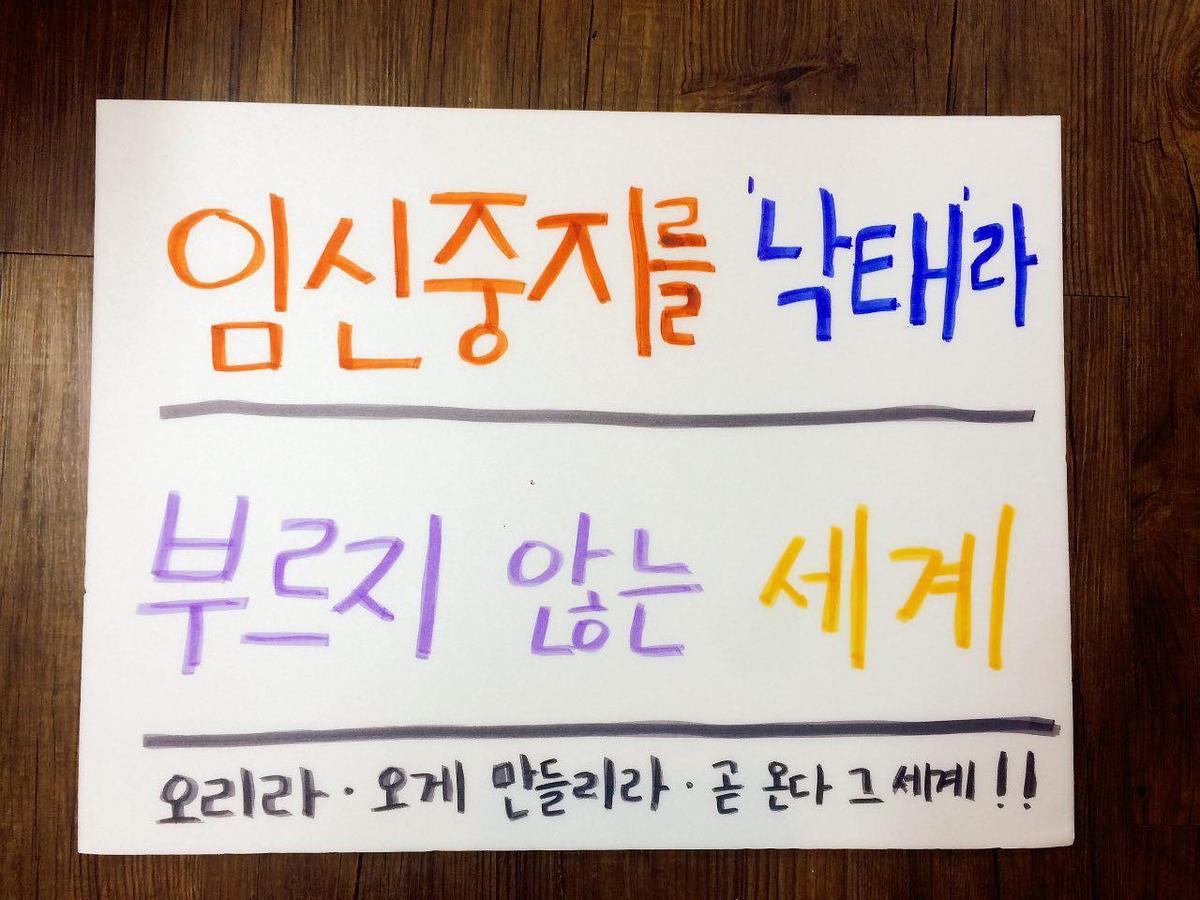 임신중지를 '낙태'라
부르지 않는 세계
오리라·오게 만들리라·곧 온다 그 세계!!